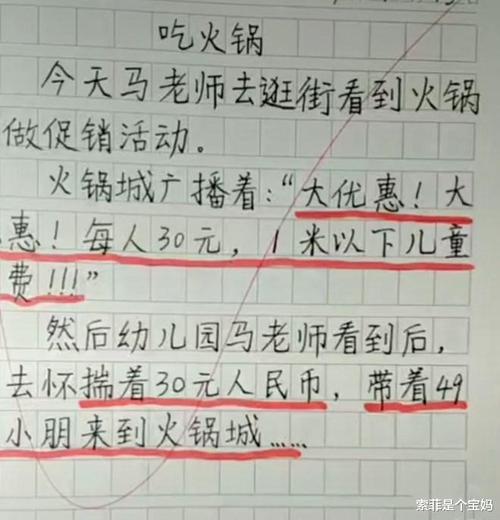 吃火锅
今天马老师去逛街看到火锅
做促销活动。
火锅城广播着：“大优惠！大
惠！每人30元，1米以下儿童
费!!!”
然后幼儿园马老师看到后，
去怀揣着30元人民币，带着49
小朋来到火锅城……
索菲是个宝妈